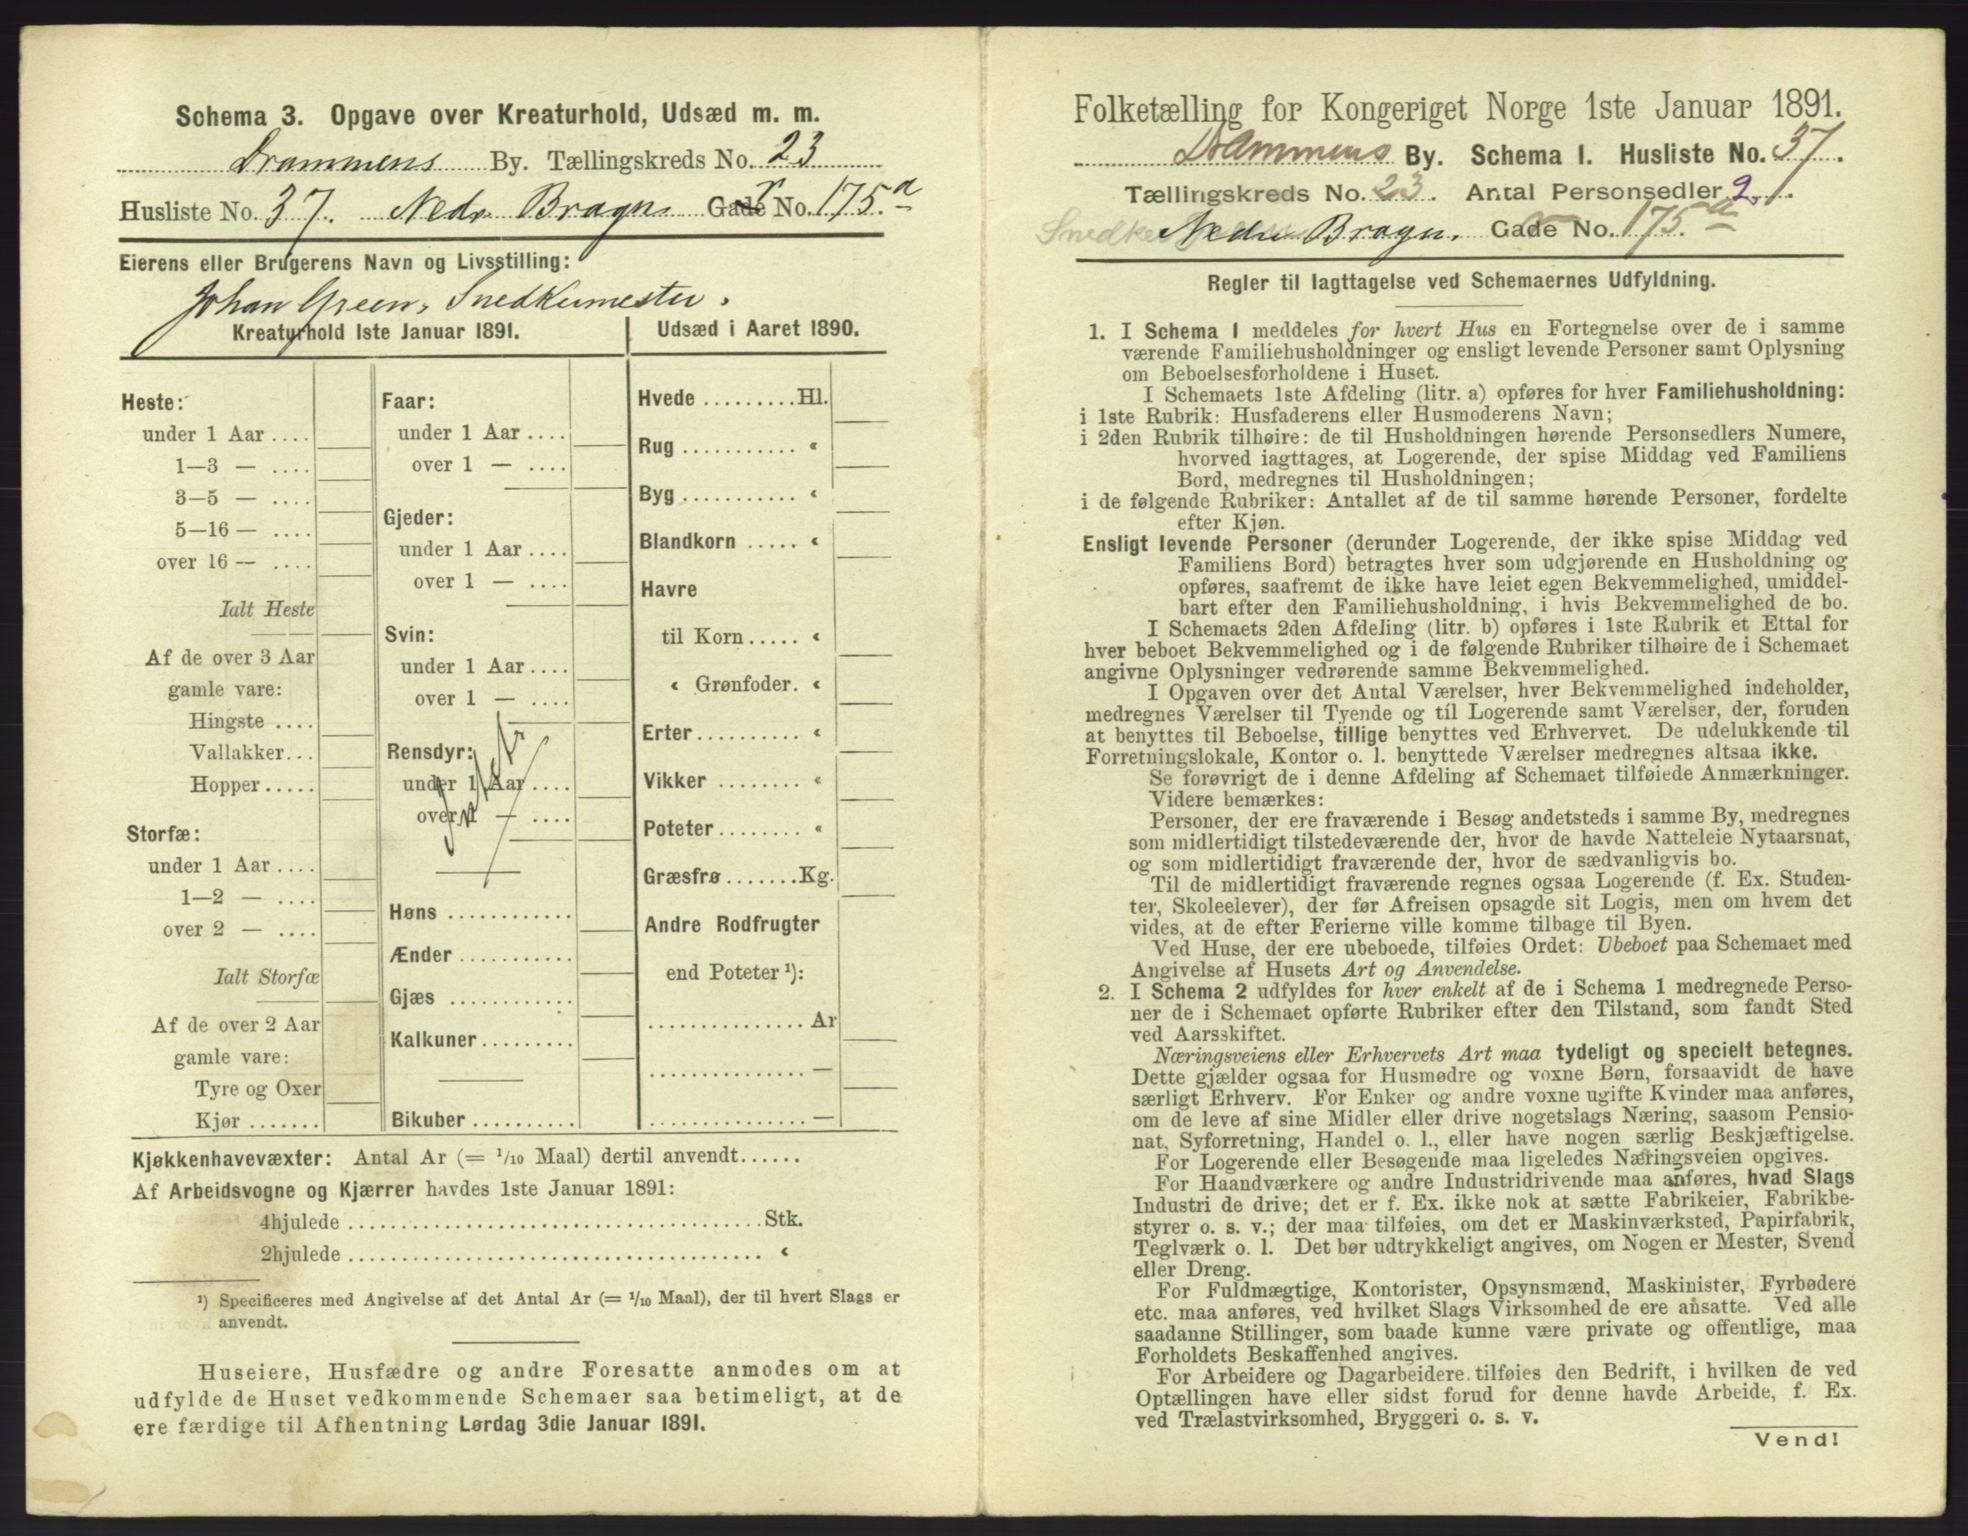 Schema 3. Opgave over Kreaturhold, Udsæd m. m.
Drammens By. Tællingskreds No. 23
Husliste No. 37. Nedr Bragn. Gade No. 175 a
Eierens eller Brugerens Navn og Livsstilling:
Johan Green, Snedkermester.
Kreaturhold 1ste Januar 1891.
Heste:
under 1 Aar ....
1—3 — ....
3—5 — ....
5—16 — ....
over 16 — ....
Ialt Heste
Af de over 3 Aar
gamle vare:
Hingste ....
Vallakker...
Hopper.....
Storfæ:
under 1 Aar ....
1—2 — ....
over 2 — ....
Ialt Storfæ
Af de over 2 Aar
gamle vare:
Tyre og Oxer
Kjør .......
Faar:
under 1 Aar ....
over 1 — ....
Gjeder:
under 1 Aar ....
over 1 — ....
Svin:
under 1 Aar ....
over 1 — ....
Rensdyr:
under 1 Aar ....
over 1 — ....
Intet
Høns ............
Ænder ...........
Gjæs ............
Kalkuner.........
Bikuber ..........
Udsæd i Aaret 1890.
Hvede .........Hl.
Rug ........... «
Byg ........... «
Blandkorn ..... «
Havre
til Korn..... «
« Grønfoder. «
Erter.......... «
Vikker ........ «
Poteter........ «
Græsfrø.......Kg.
Andre Rodfrugter
end Poteter ¹):
............... Ar
............... —
............... —
Kjøkkenhavevæxter: Antal Ar (= 1/10 Maal) dertil anvendt......
Af Arbeidsvogne og Kjærrer havdes 1ste Januar 1891:
4hjulede ........................................Stk.
2hjulede ........................................ «
¹) Specificeres med Angivelse af det Antal Ar (= 1/10 Maal), der til hvert Slags er
anvendt.
Huseiere, Husfædre og andre Foresatte anmodes om at
udfylde de Huset vedkommende Schemaer saa betimeligt, at de
ere færdige til Afhentning Lørdag 3die Januar 1891.
Folketælling for Kongeriget Norge 1ste Januar 1891.
Drammens By. Schema 1. Husliste No. 37.
Tællingskreds No. 23. Antal Personsedler 2.
Nedre Bragn. Gade No. 175 a
Regler til Iagttagelse ved Schemaernes Udfyldning.
1. I Schema 1 meddeles for hvert Hus en Fortegnelse over de i samme
værende Familiehusholdninger og ensligt levende Personer samt Oplysning
om Beboelsesforholdene i Huset.
I Schemaets 1ste Afdeling (litr. a) opføres for hver Familiehusholdning:
i 1ste Rubrik: Husfaderens eller Husmoderens Navn;
i 2den Rubrik tilhøire: de til Husholdningen hørende Personsedlers Numere,
hvorved iagttages, at Logerende, der spise Middag ved Familiens
Bord, medregnes til Husholdningen;
i de følgende Rubriker: Antallet af de til samme hørende Personer, fordelte
efter Kjøn.
Ensligt levende Personer (derunder Logerende, der ikke spise Middag ved
Familiens Bord) betragtes hver som udgjørende en Husholdning og
opføres, saafremt de ikke have leiet egen Bekvemmelighed, umiddel-
bart efter den Familiehusholdning, i hvis Bekvemmelighed de bo.
I Schemaets 2den Afdeling (litr. b) opføres i 1ste Rubrik et Ettal for
hver beboet Bekvemmelighed og i de følgende Rubriker tilhøire de i Schemaet
angivne Oplysninger vedrørende samme Bekvemmelighed.
I Opgaven over det Antal Værelser, hver Bekvemmelighed indeholder,
medregnes Værelser til Tyende og til Logerende samt Værelser, der, foruden
at benyttes til Beboelse, tillige benyttes ved Erhvervet. De udelukkende til
Forretningslokale, Kontor o. l. benyttede Værelser medregnes altsaa ikke.
Se forøvrigt de i denne Afdeling af Schemaet tilføiede Anmærkninger.
Videre bemærkes:
Personer, der ere fraværende i Besøg andetsteds i samme By, medregnes
som midlertidigt tilstedeværende der, hvor de havde Natteleie Nytaarsnat,
og som midlertidigt fraværende der, hvor de sædvanligvis bo.
Til de midlertidigt fraværende regnes ogsaa Logerende (f. Ex. Studen-
ter, Skoleelever), der før Afreisen opsagde sit Logis, men om hvem det
vides, at de efter Ferierne ville komme tilbage til Byen.
Ved Huse, der ere ubeboede, tilføies Ordet: Ubeboet paa Schemaet med
Angivelse af Husets Art og Anvendelse.
2. I Schema 2 udfyldes for hver enkelt af de i Schema 1 medregnede Perso-
ner de i Schemaet opførte Rubriker efter den Tilstand, som fandt Sted
ved Aarsskiftet.
Næringsveiens eller Erhvervets Art maa tydeligt og specielt betegnes.
Dette gjælder ogsaa for Husmødre og voxne Børn, forsaavidt de have
særligt Erhverv. For Enker og andre voxne ugifte Kvinder maa anføres,
om de leve af sine Midler eller drive nogetslags Næring, saasom Pensio-
nat, Syforretning, Handel o. l., eller have nogen særlig Beskjæftigelse.
For Logerende eller Besøgende maa ligeledes Næringsveien opgives.
For Haandværkere og andre Industridrivende maa anføres, hvad Slags
Industri de drive; det er f. Ex. ikke nok at sætte Fabrikeier, Fabrikbe-
styrer o. s. v.; der maa tilføies, om det er Maskinværksted, Papirfabrik,
Teglværk o. l. Det bør udtrykkeligt angives, om Nogen er Mester, Svend
eller Dreng.
For Fuldmægtige, Kontorister, Opsynsmænd, Maskinister, Fyrbødere
etc. maa anføres, ved hvilket Slags Virksomhed de ere ansatte. Ved alle
saadanne Stillinger, som baade kunne være private og offentlige, maa
Forholdets Beskaffenhed angives.
For Arbeidere og Dagarbeidere tilføies den Bedrift, i hvilken de ved
Optællingen have eller sidst forud for denne havde Arbeide, f. Ex.
ved Trælastvirksomhed, Bryggeri o. s. v.
Vend!